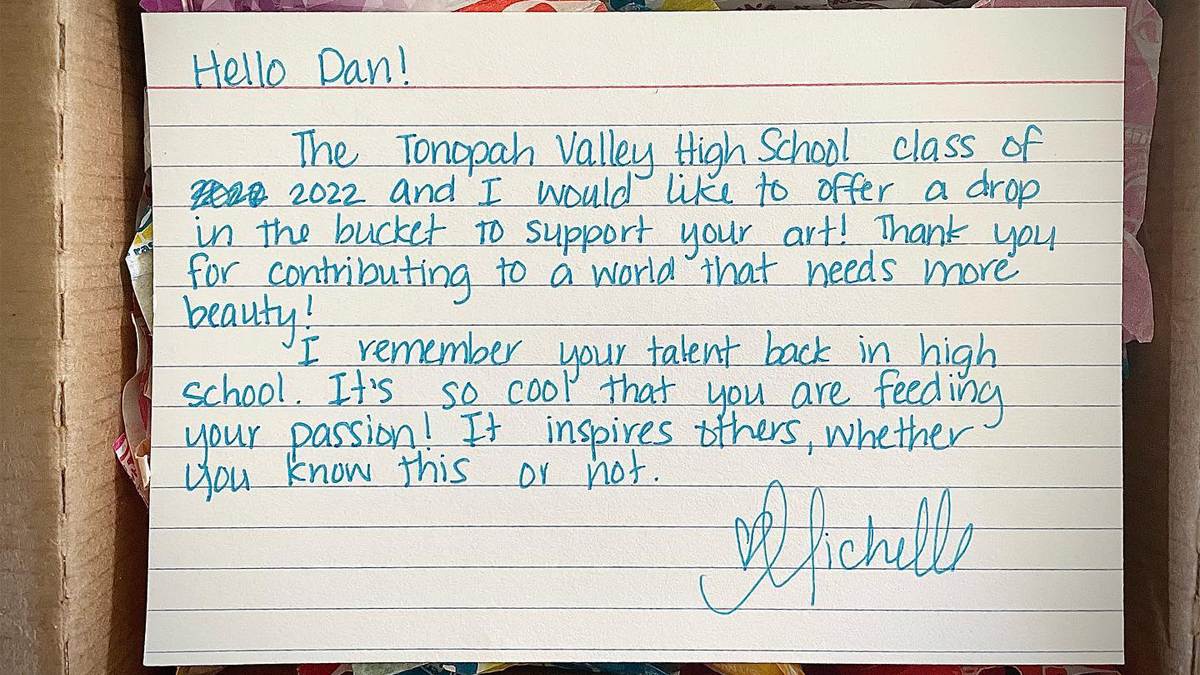 Hello Dan!
The Tonopah Valley High School class of
2022 and I would like to offer a drop
in the bucket to support your art! Thank you
for contributing to a world that needs more
beauty!
I remember your talent back in high
school. It's so cool that you are feeding
your passion! It inspires others, whether
you know this or not.
Michelle